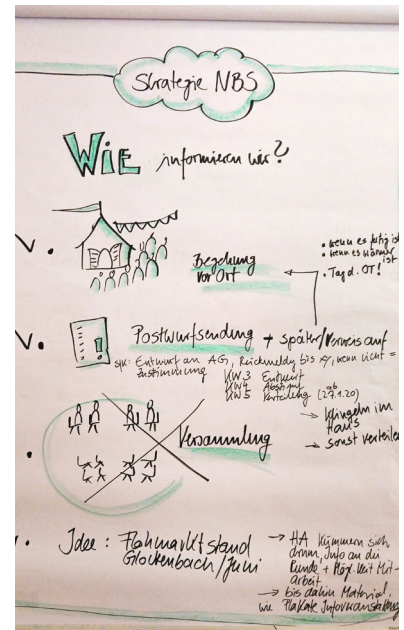 Strategie NBS
WIE informieren wir?
• wenn es fertig ist
• wenn es wärmer ist
• Tag d. OT!
Begehung
vor Ort
Postwurfsendung + später/Verweis auf
Entwurf an AG, Rückmeldg bis wenn nicht =
Zustimmung
KW 3 Entwurf
KW 4 Abstimg
KW 5 Verteilung (27.1.20)
ab
→ klingeln im
Haus
→ sonst verteilen
Versammlung
Idee: Flohmarktstand
Glockenbach/Juni
→ HA kümmern sich
drum, Info an die
Runde + Mögl.keit Mit-
arbeit
→ bis dahin Material,
wie Plakate Infoveranstaltung